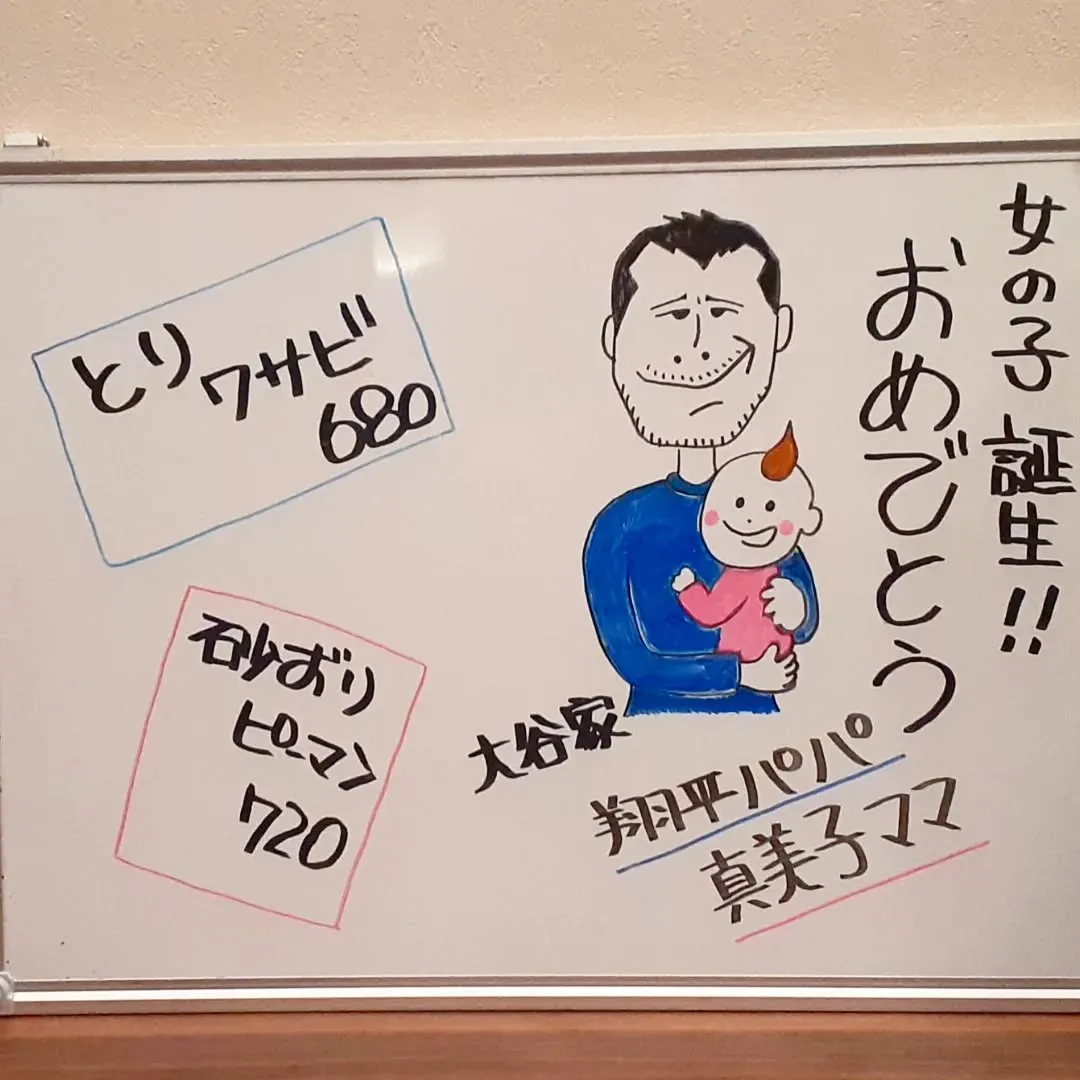 女の子誕生!!
おめでとう
大谷家
翔平パパ
真美子ママ
とりワサビ
680
砂おり
ピーマン
720